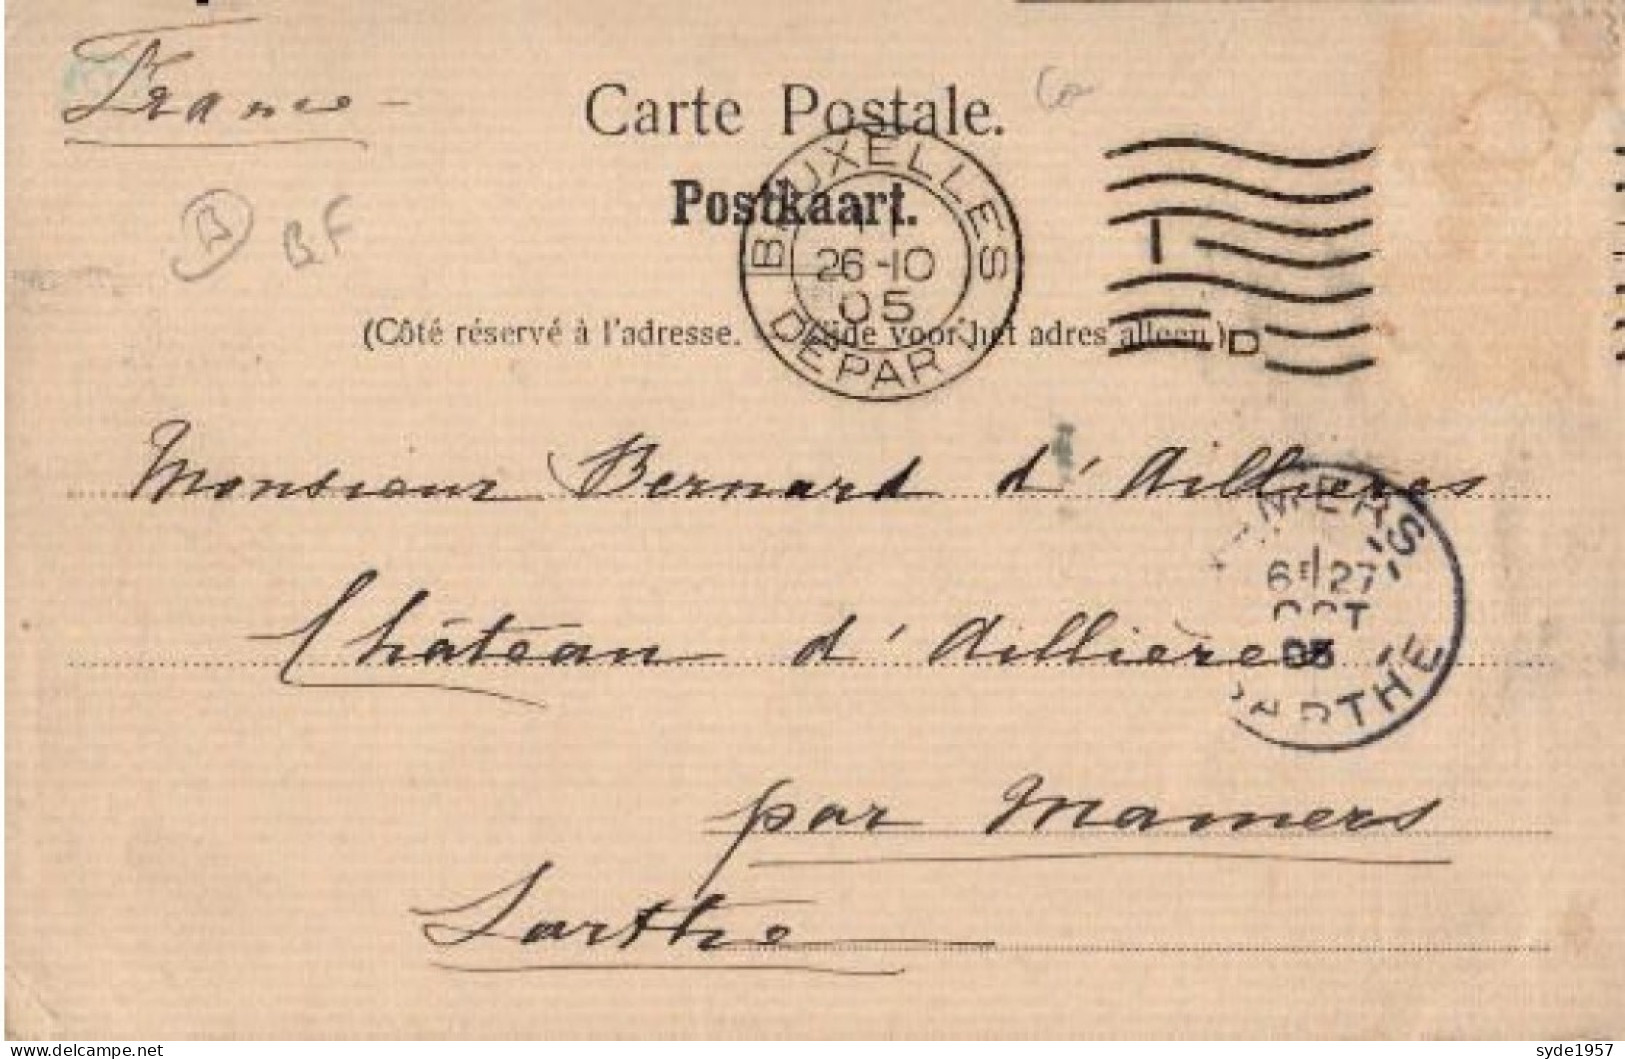 France -
Carte Postale.
Postkaart.
B BF
BRUXELLES
11
26-10
05
DEPART
I
D
(Côté réservé à l'adresse. — Zijde voor het adres alleen.)
Monsieur Bernard d'Aillières
MAMERS
6E 27
OCT
05
SARTHE
Château d'Aillières
par Mamers
Sarthe
delcampe.net
syde1957